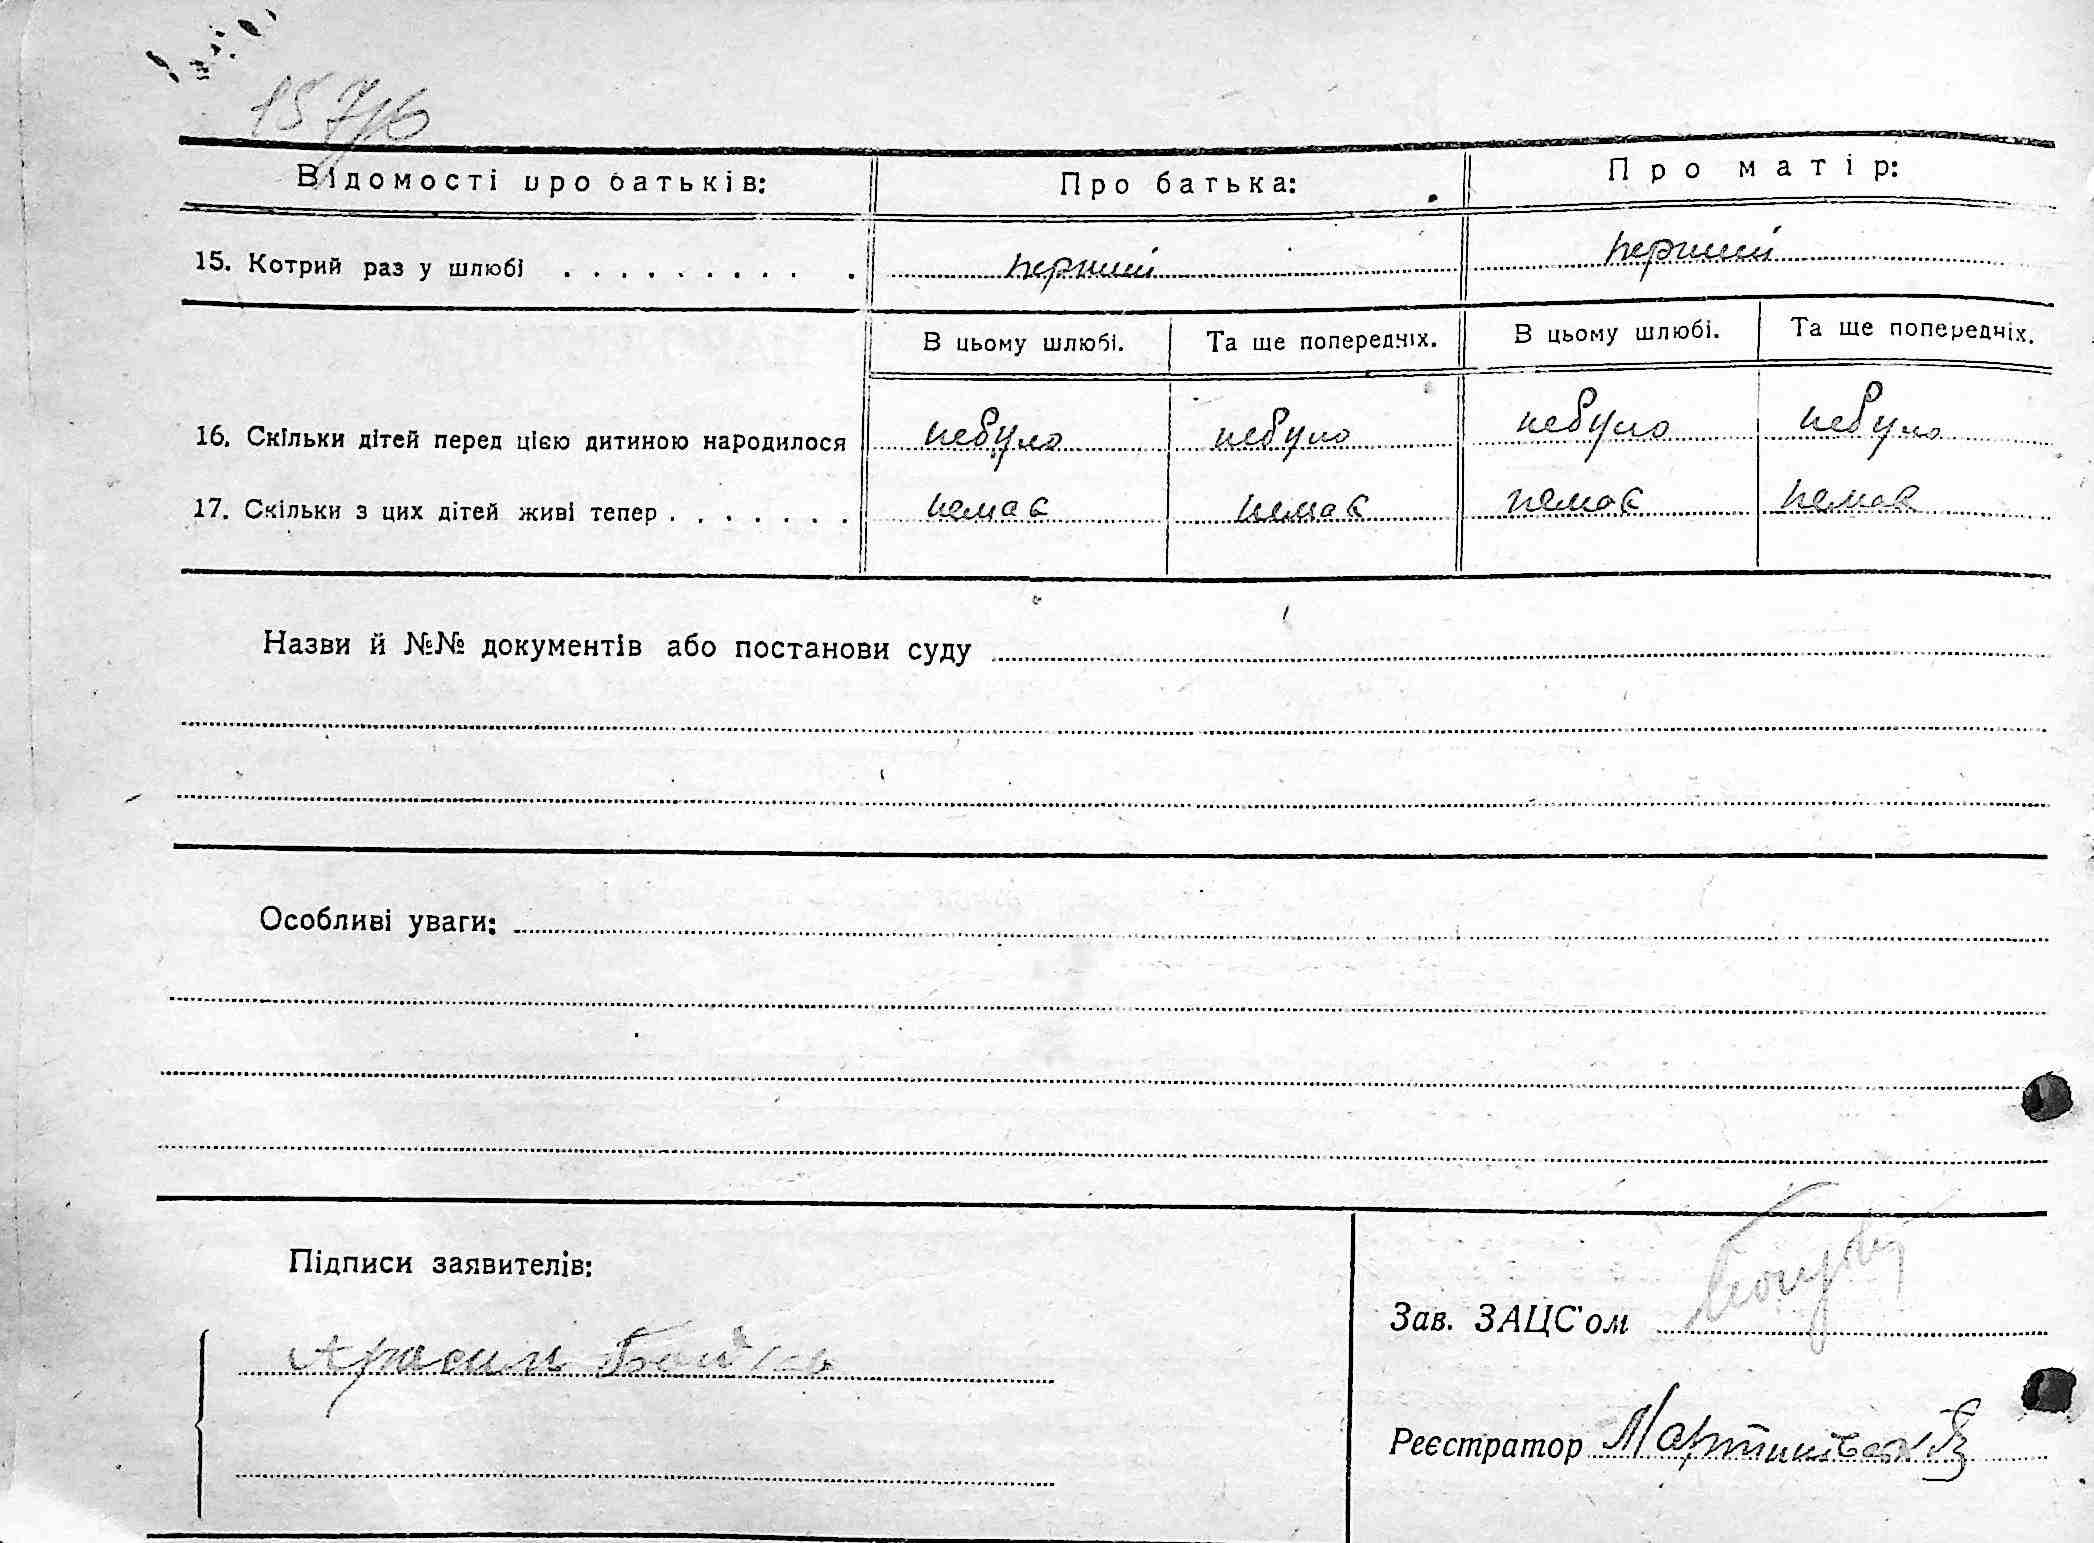 Відомості про батьків: Про батька: Про матір:
15. Котрий раз у шлюбі . . . . . . . . . . перший перший
В цьому шлюбі. Та ще попередніх. В цьому шлюбі. Та ще попередніх.
16. Скільки дітей перед цією дитиною народилося небуло небуло небуло небуло
17. Скільки з цих дітей живі тепер . . . . . . . немає немає немає немає
Назви й №№ документів або постанови суду
Особливі уваги:
Підписи заявителів:
Зав. ЗАЦС'ом
Реєстратор